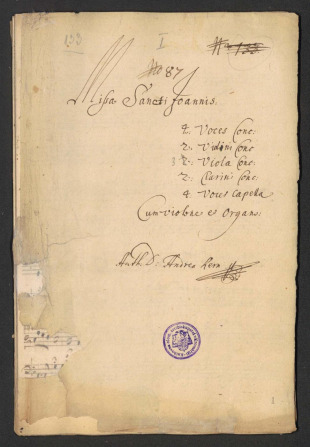 133
I
No 133
No 87
Missa Sancti Joannis.
4. Voces Conc:
2. Violini Conc
3 2. Viola Conc:
2. Clarini Conc:
4 Voces Capella
Cum violone et Organo.
Auth D: Andrea